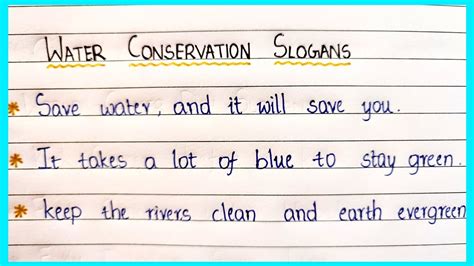 WATER CONSERVATION SLOGANS
* Save water, and it will save you.
* It takes a lot of blue to stay green.
* keep the rivers clean and earth evergreen